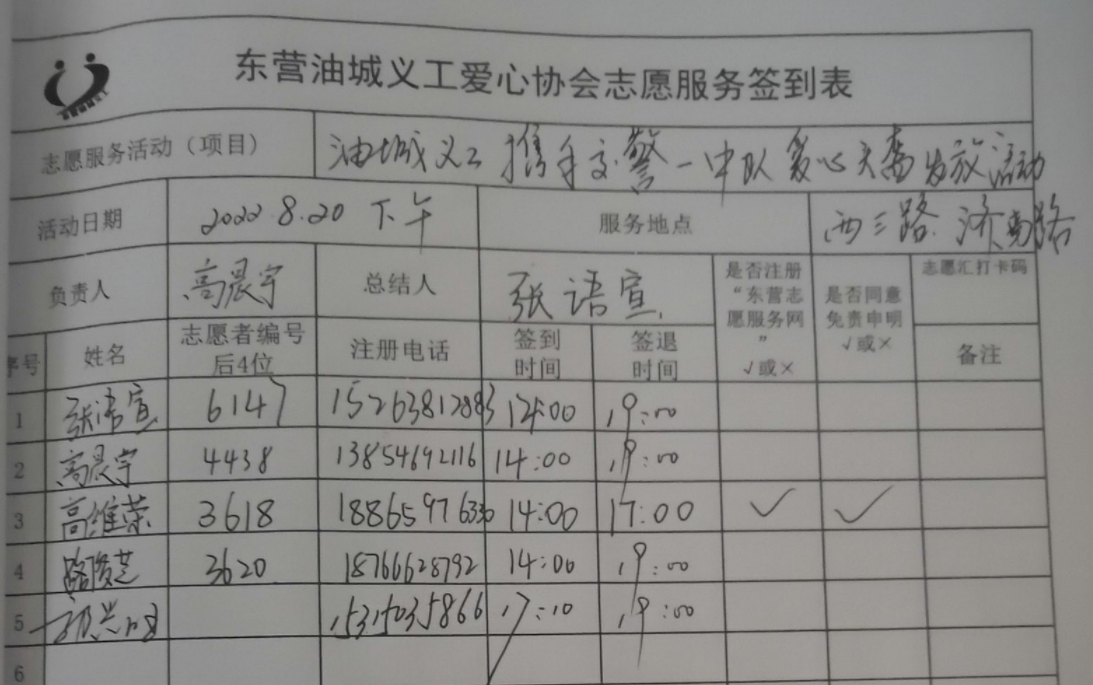 东营油城义工爱心协会志愿服务签到表
志愿服务活动（项目） 油城义工携手交警一中队爱心头盔发放活动
活动日期 2022.8.20 下午 服务地点 西三路 济南路
负责人 高晨宇 总结人 张语宣 是否注册“东营志愿服务网”√或× 是否同意免责申明√或× 志愿汇打卡码
序号 姓名 志愿者编号后4位 注册电话 签到时间 签退时间 备注
1 张语宣 6147 15263812883 14:00 19:00
2 高晨宇 4438 13854692116 14:00 19:00
3 高维荣 3618 18865976330 14:00 17:00 √ √
4 路俊芝 3620 18766628792 14:00 19:00
5 15315035866 17:10 19:00
6